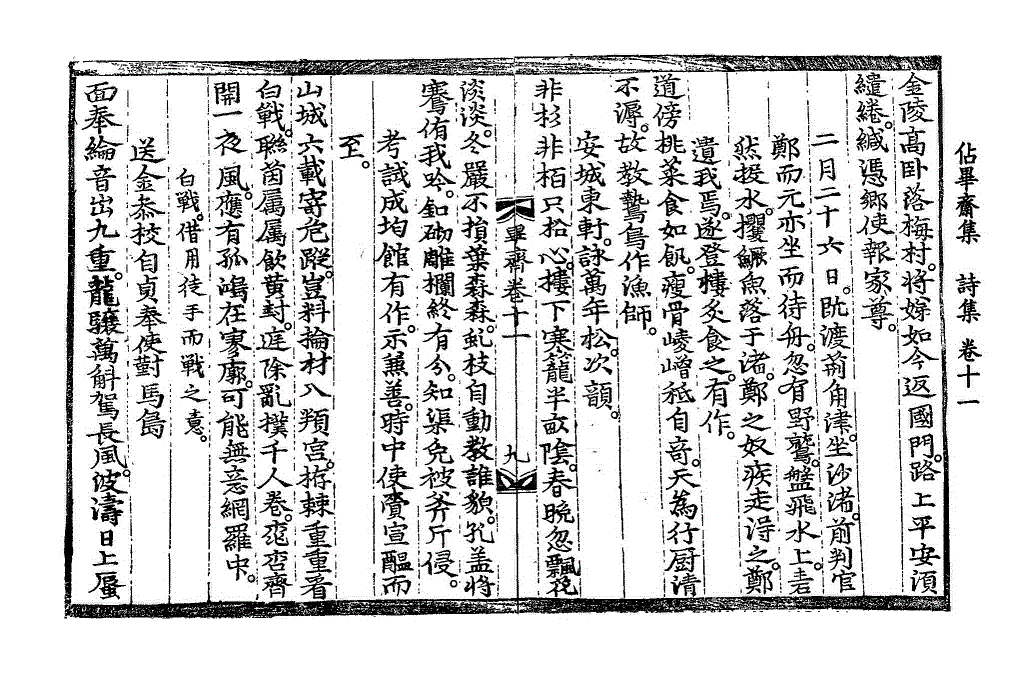 佔畢齋集　詩集　卷十一
金陵高臥落梅村。將嫁如今返國門。路上平安須
繾綣。緘憑鄕使報家尊。
二月二十六日。旣渡荊角津。坐沙渚。前判官
鄭而元亦坐而待舟。忽有野鷲。盤飛水上。砉
然投水。攫鱖魚落于渚。鄭之奴疾走得之。鄭
遺我焉。遂登樓炙食之。有作。
道傍挑菜食如飢。瘦骨崚嶒秪自奇。天爲行厨淸
不溽。故敎鷙鳥作漁師。
安城東軒。詠萬年松。次韻。
非杉非栢只拾心。樓下寒籠半畝陰。春晩忽飄花
畢齋卷十一
九
淡淡。冬嚴不損葉森森。虬枝自動敎誰貌。孔盖將
騫侑我吟。釦砌雕欄終有分。知渠免被斧斤侵。
考試成均館有作。示兼善。時中使賫宣醞而
至。
山城六載寄危蹤。豈料掄材入頖宮。栫棘重重看
白戰。聯茵屬屬飮黃封。庭除亂撲千人卷。
開一夜風。應有孤鴻在寥廓。可能無恙網羅中。
白戰。借用徒手而戰之意。
送金叅校自貞奉使對馬島
面奉綸音出九重。龍驤萬斛駕長風。波濤日上蜃